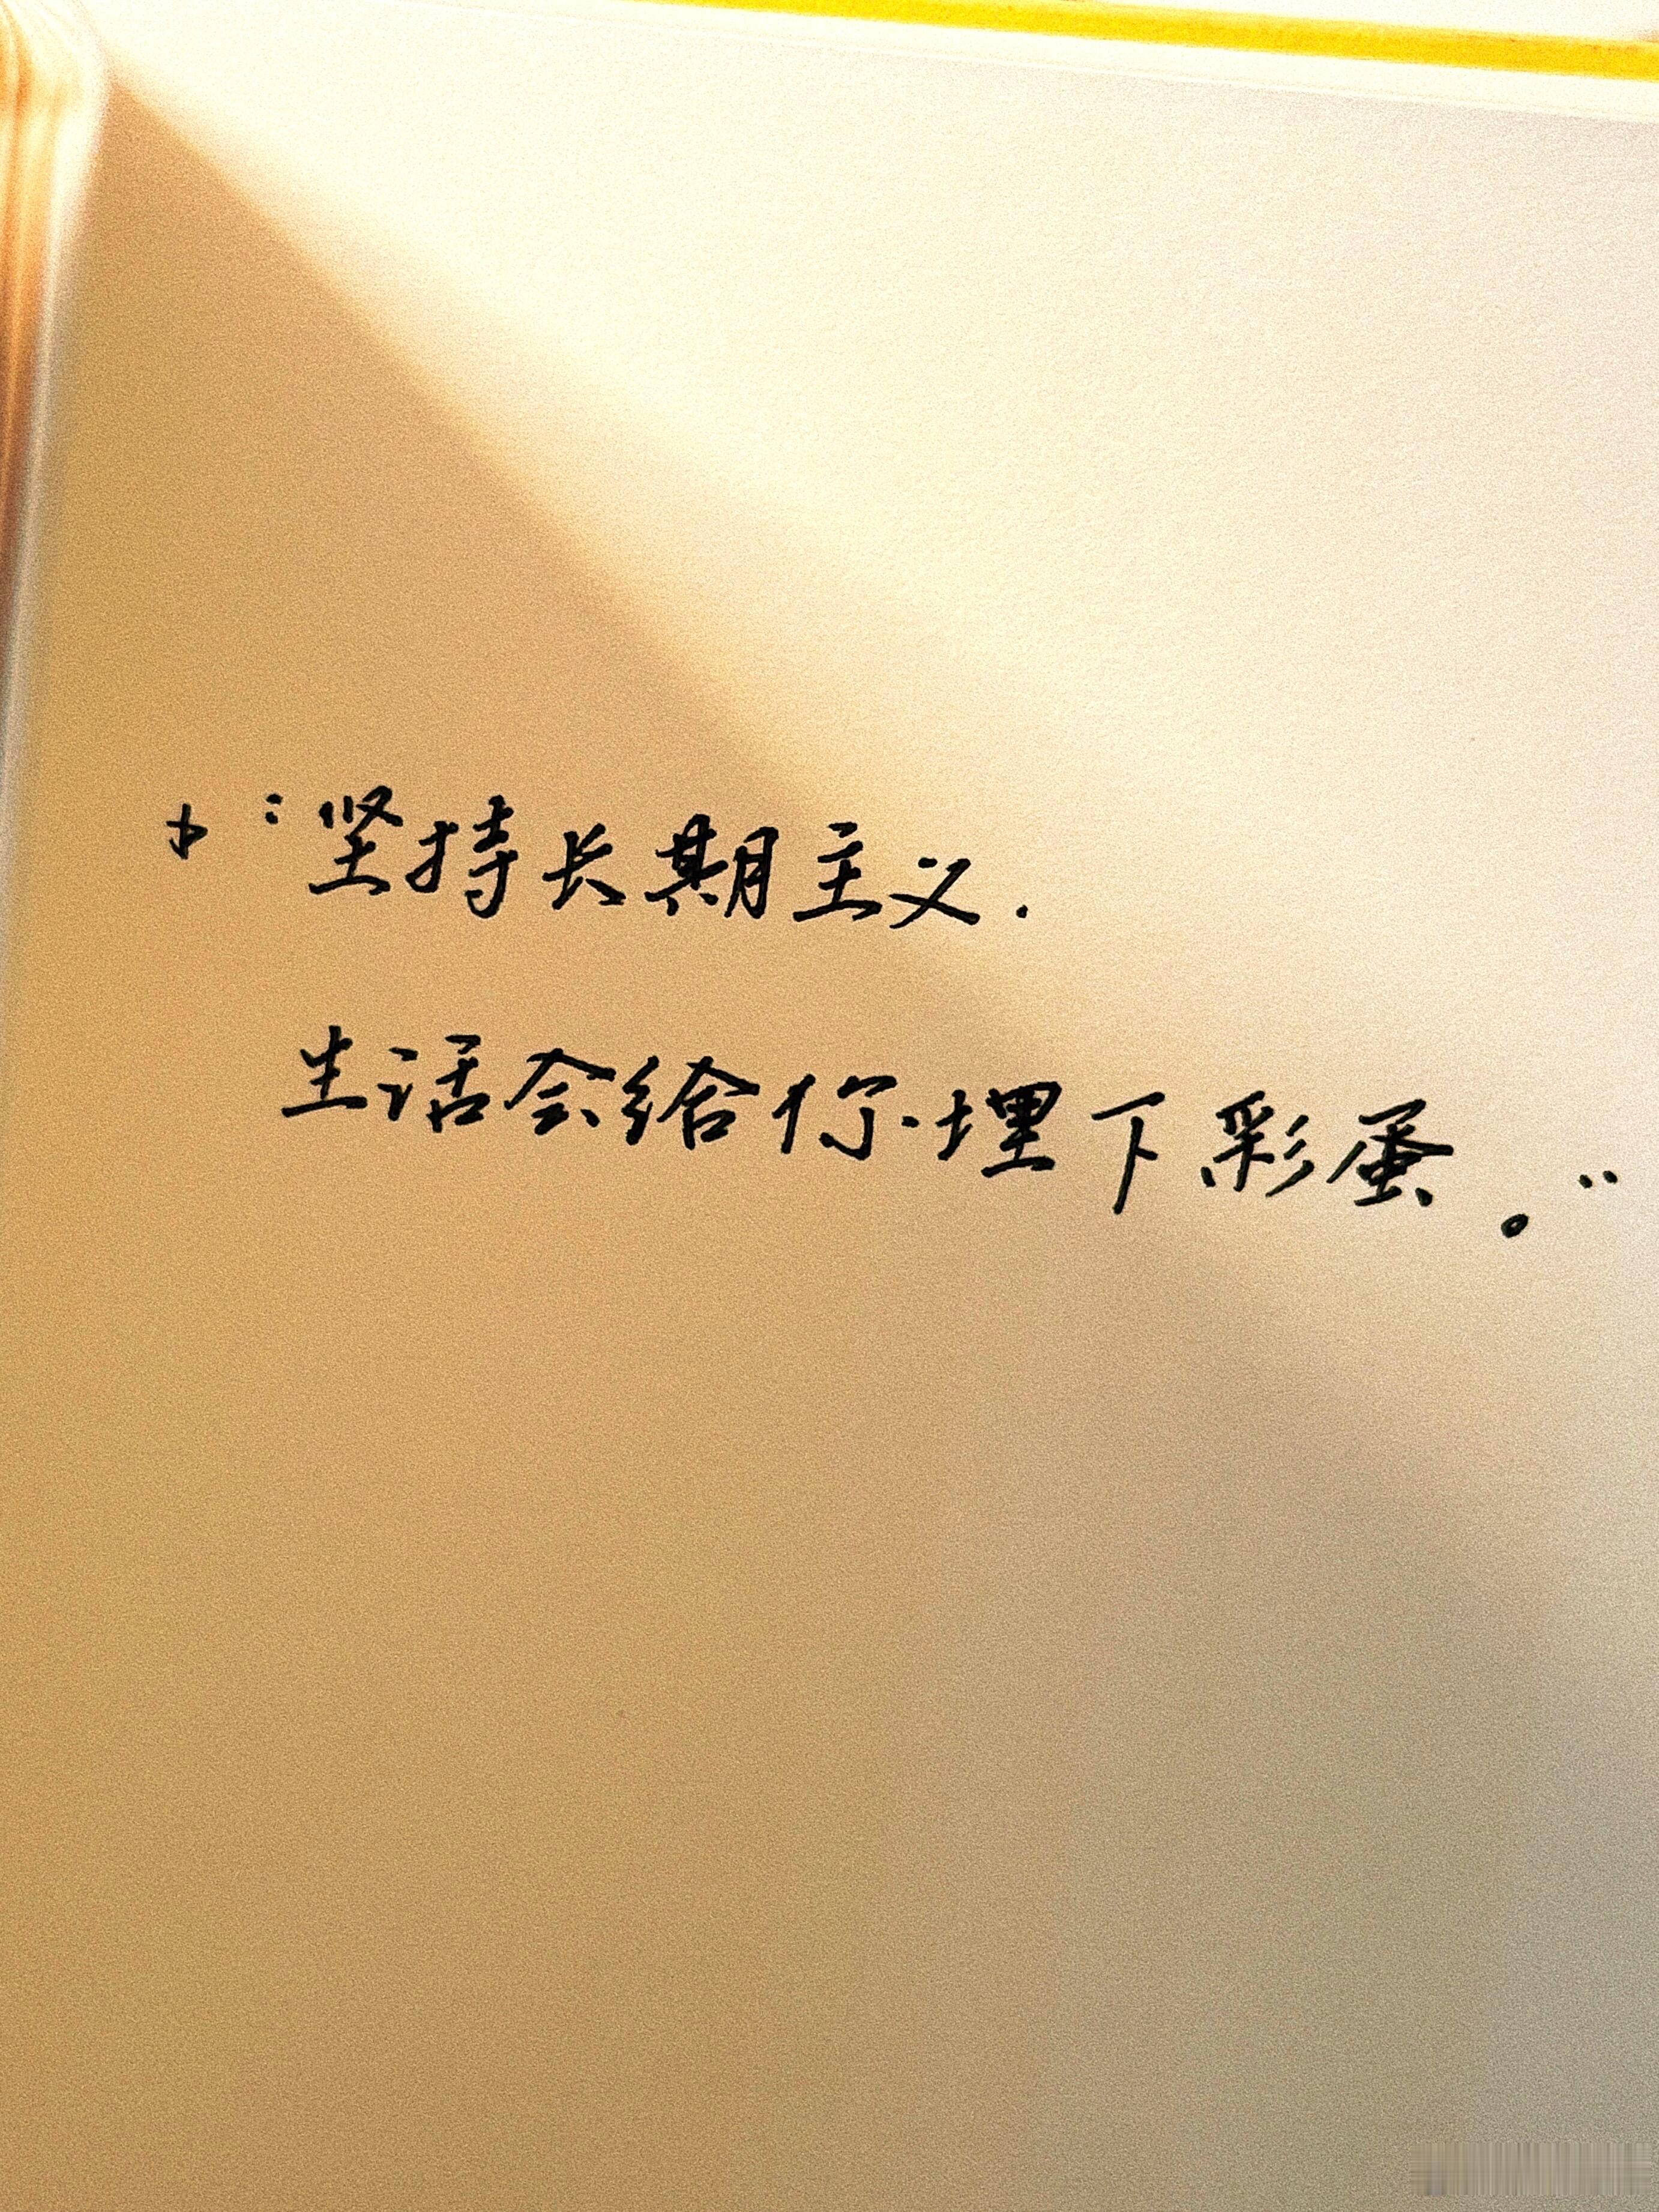 “坚持长期主义.
生活会给你埋下彩蛋。”